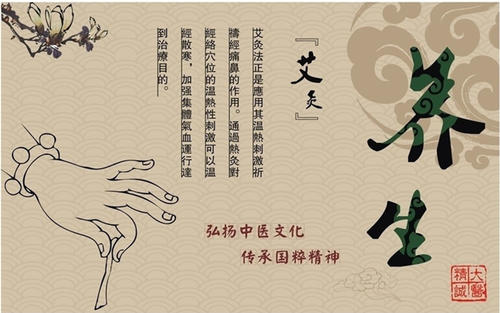 养生
『艾灸』
艾灸法正是應用其温熱刺激祈
禱經痛鼻的作用。通過熱灸對
經絡穴位的温熱性刺激可以温
經散寒，加强集體氣血運行達
到治療目的。—
弘扬中医文化
传承国粹精神
大醫
精誠